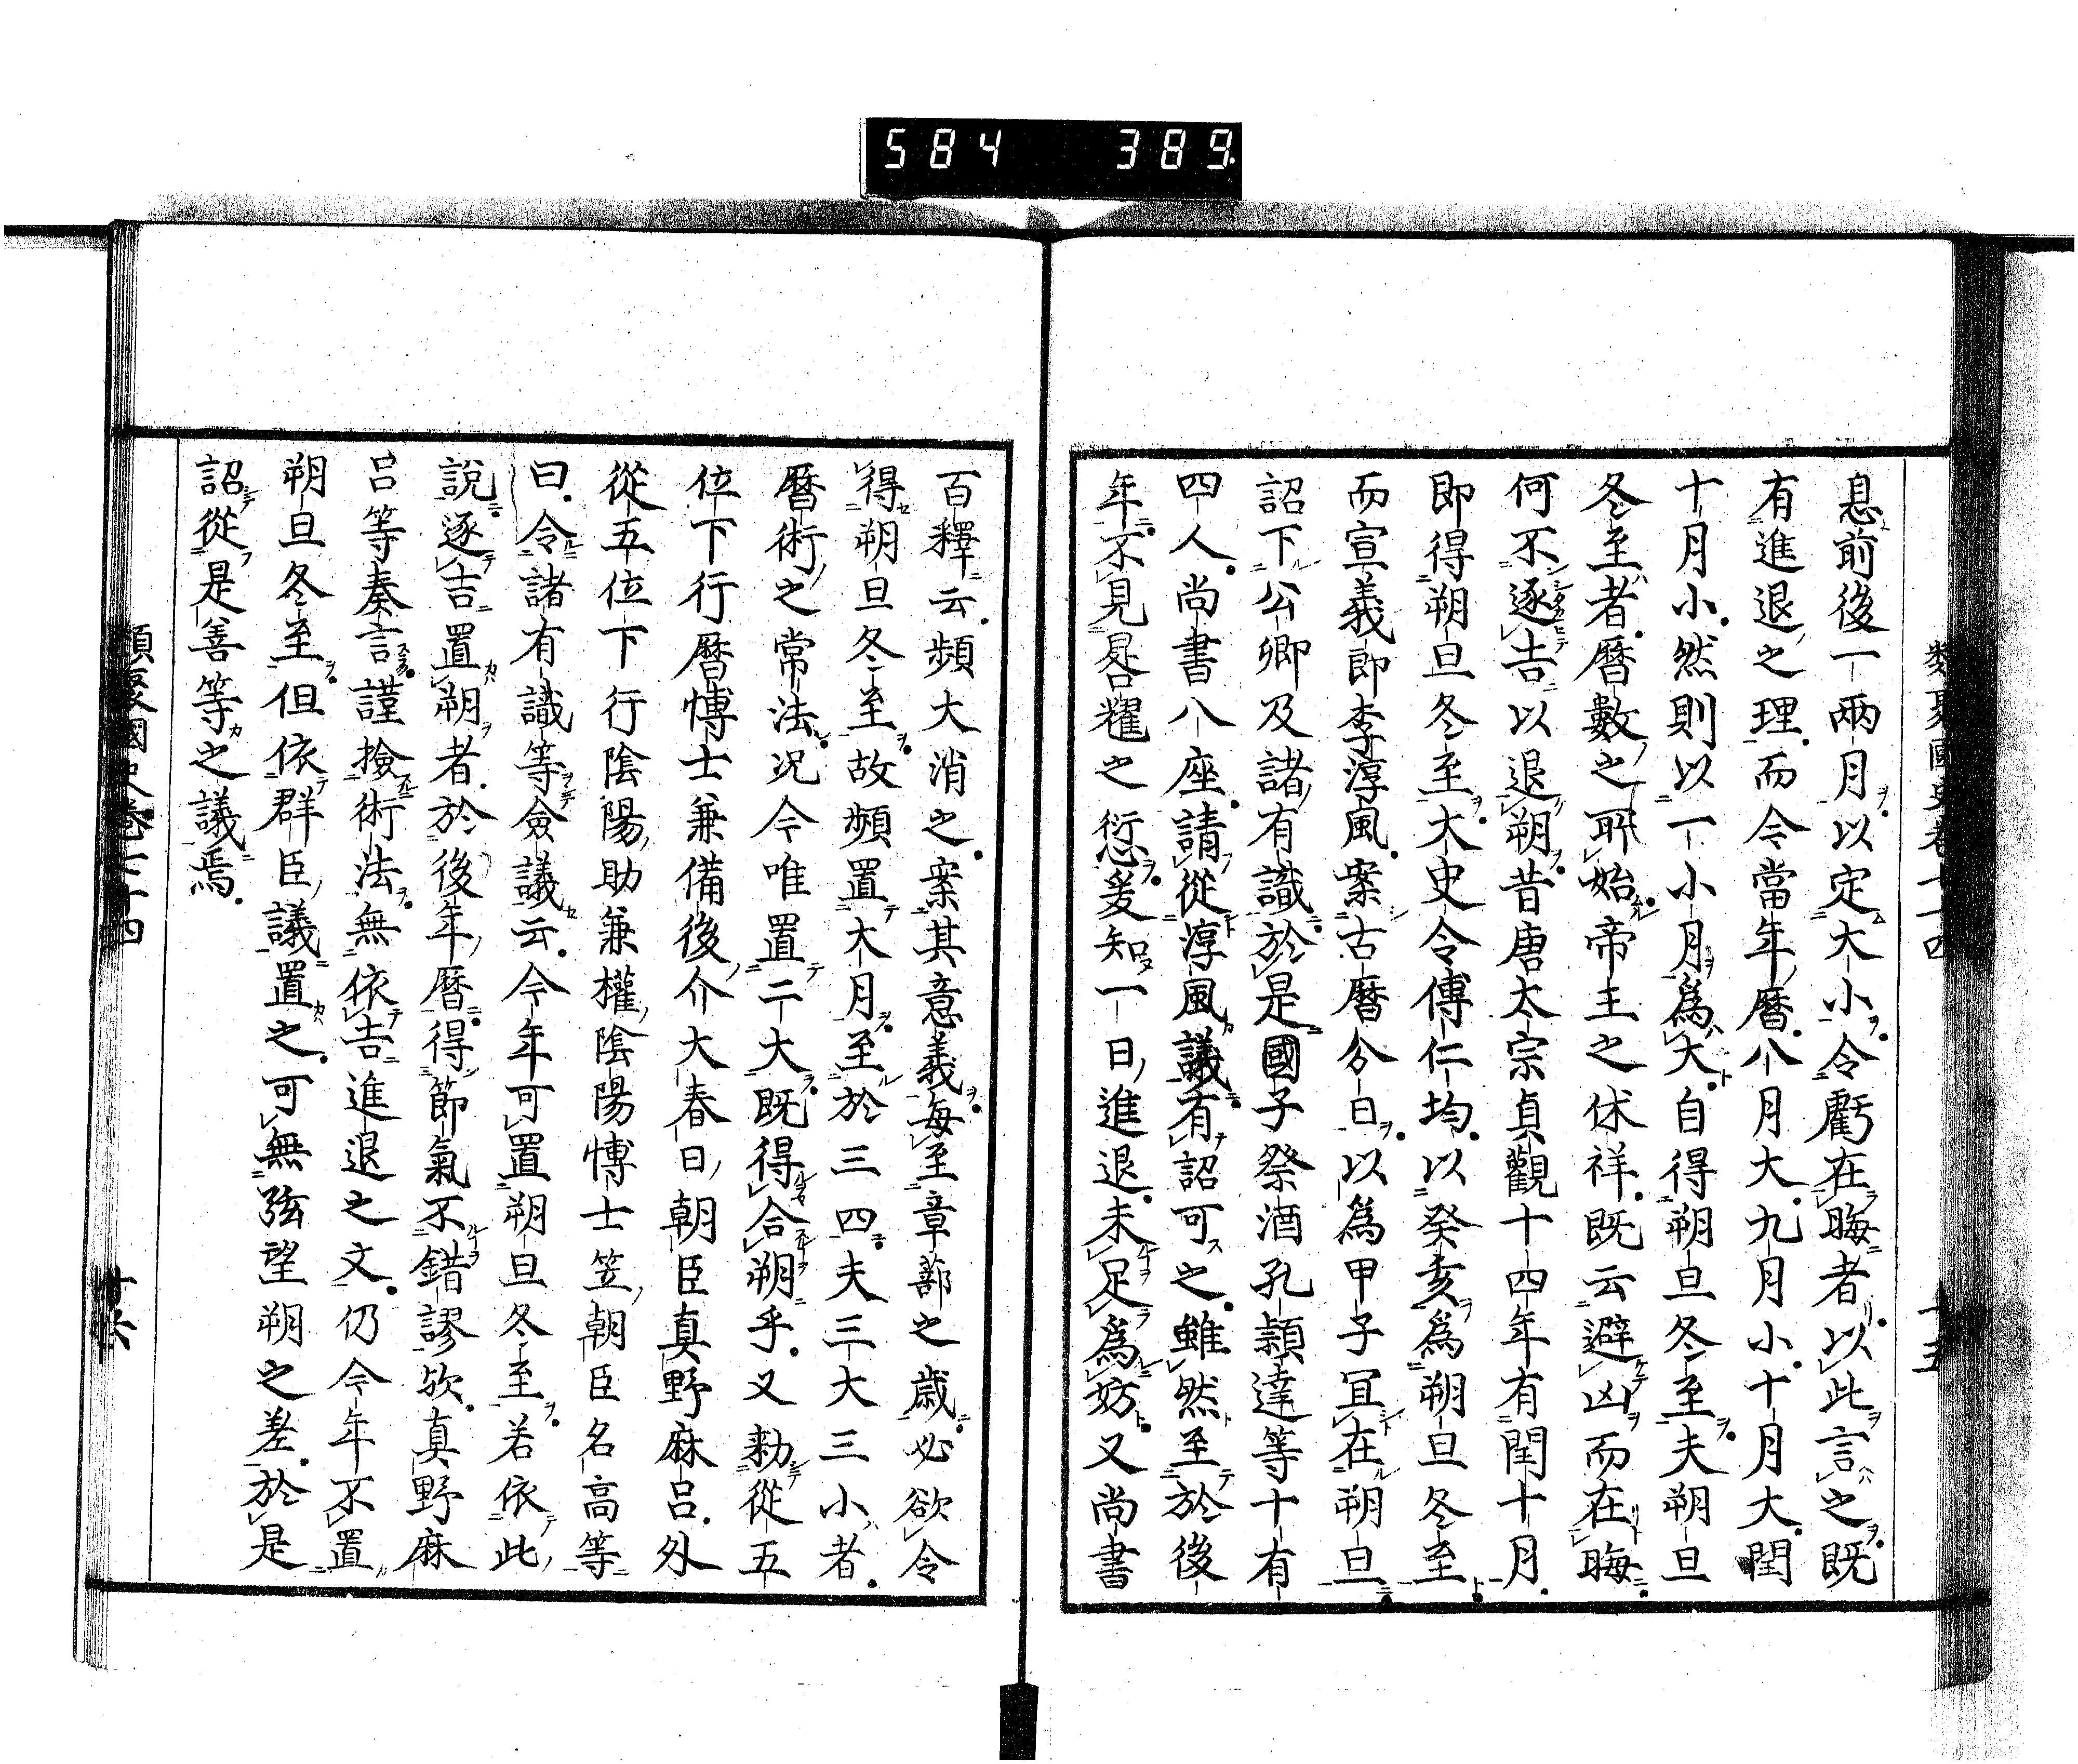 584 389
息前後一兩月以定大小令虧在晦者以此言之既
有進退之理而今當年曆八月大九月小十月大閏
十月小然則以一小月爲大自得朔旦冬至夫朔旦
冬至者曆數之所始帝王之休祥既云避凶而在晦
何不逐吉以退朔昔唐太宗貞觀十四年有閏十月
即得朔旦冬至大史令傅仁均以癸亥爲朔旦冬至
而宣義郎李淳風案古曆分日以爲甲子冝在朔旦
詔下公卿及諸有識於是國子祭酒孔穎達等十有
四人尚書八座請從淳風議有詔可之雖然至於後
年不見晷耀之愆爰知一日進退未足爲妨又尚書
百釋云頻大消之案其意義每至章蔀之歳必欲令
得朔旦冬至故頻置大月至於三四夫三大三小者
曆術之常法况今唯置二大既得合朔乎又勅從五
位下行曆博士兼備後介大春日朝臣真野麻呂外
從五位下行陰陽助兼權陰陽博士笠朝臣名高等
曰令諸有識等僉議云今年可置朔旦冬至若依此
說逐吉置朔者於後年曆得節氣不錯謬欤真野麻
呂等奏言謹撿術法無依吉進退之文仍今年不置
朔旦冬至但依群臣議置之可無弦望朔之差於是
詔從是善等之議焉
類聚國史卷七十四